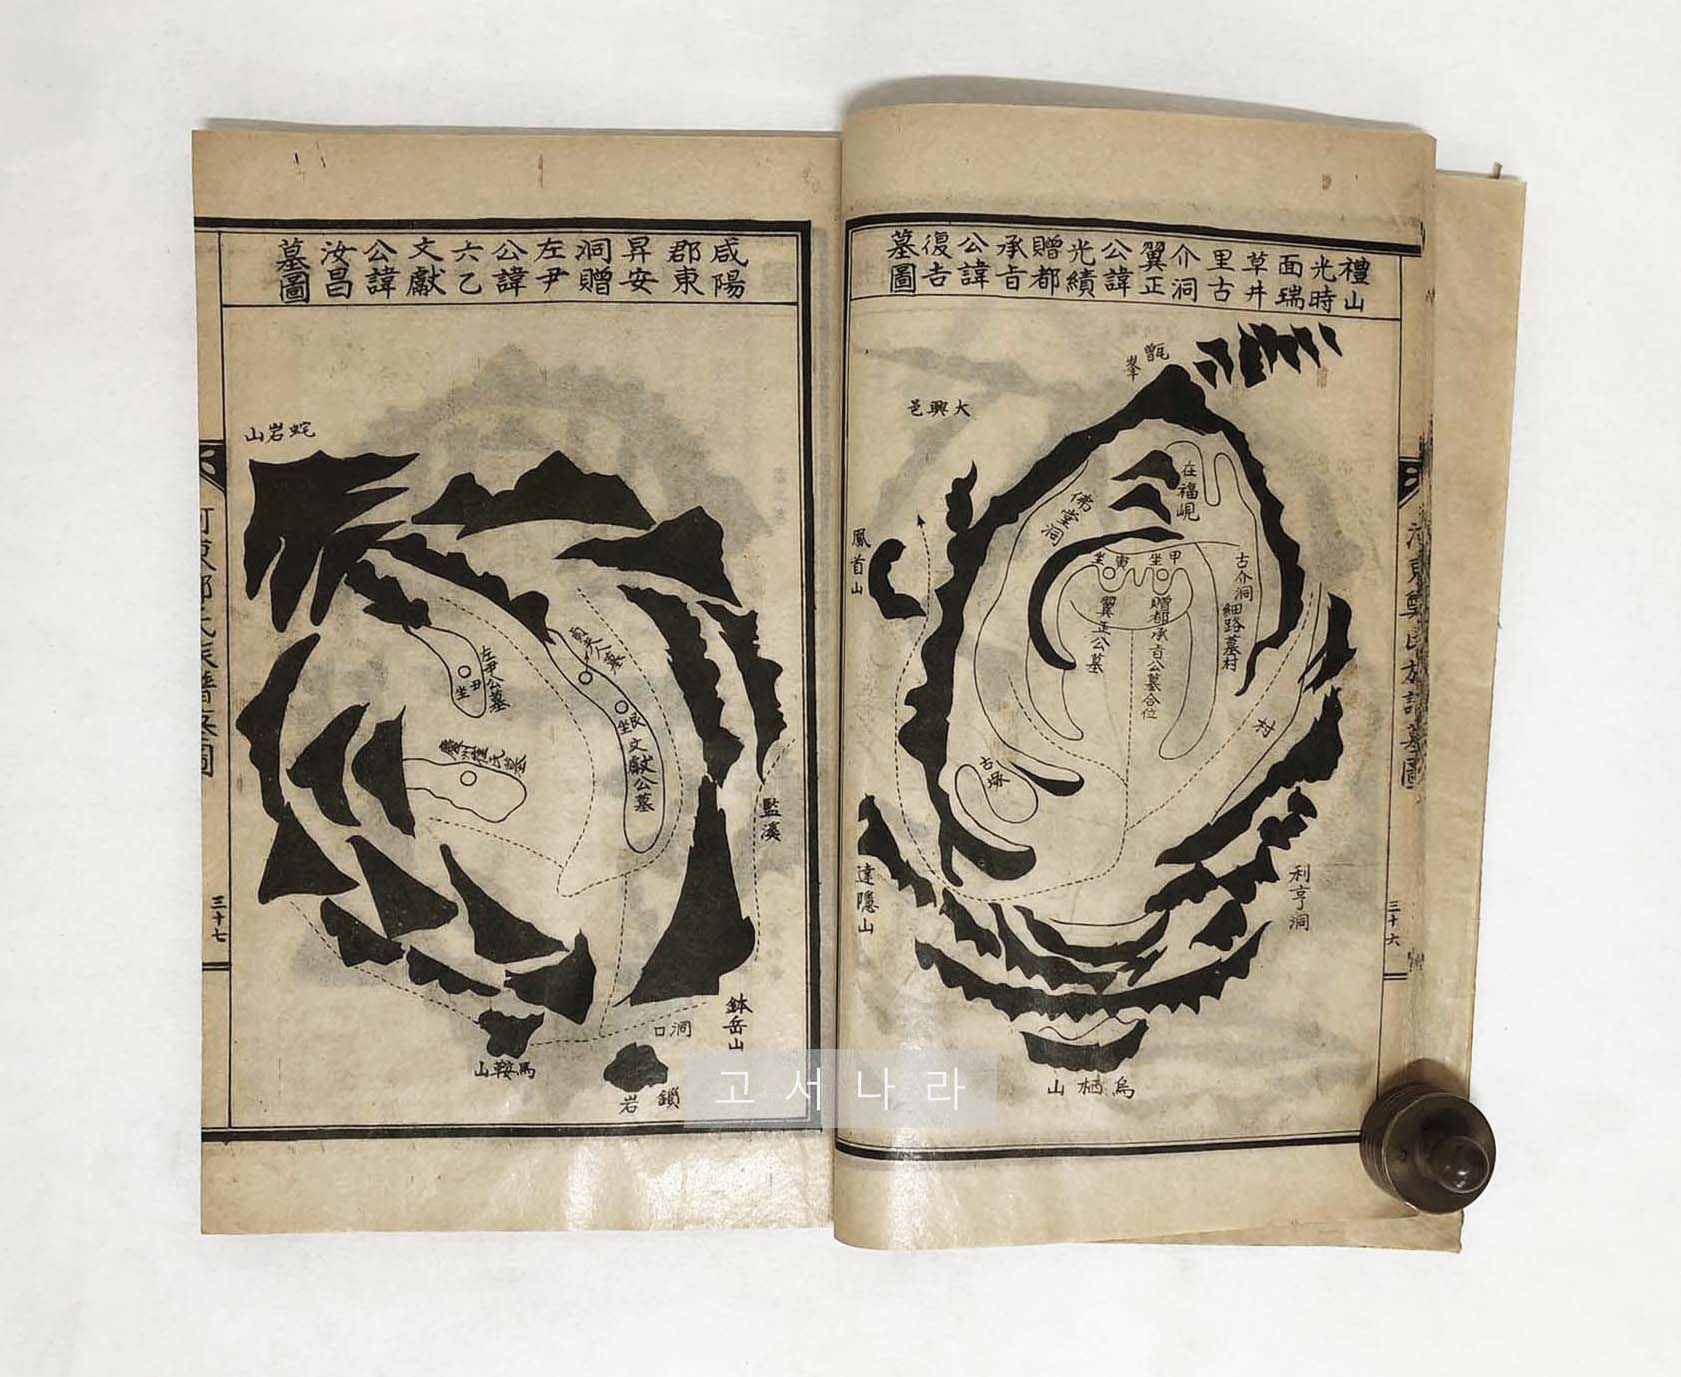 禮山
光時
面瑞
草井
里古
介洞
翼正
公諱
光績
贈都
承旨
公諱
復吉
墓圖
甑峯
大興邑
在福峴
佛堂洞
鳳首山
寅坐
甲坐
翼正公墓
贈都承旨公墓合位
古介洞細路墓村
村
古塚
達隱山
利亨洞
烏栖山
河東鄭氏族譜墓圖
三十六
咸陽
郡東
昇安
洞贈
左尹
公諱
六乙
文獻
公諱
汝昌
墓圖
蛇岩山
左尹公墓
尹坐
夫人墓
艮坐
文獻公墓
藍溪
鉢岳山
洞口
馬鞍山
鎖岩
河東鄭氏族譜墓圖
三十七
고서나라